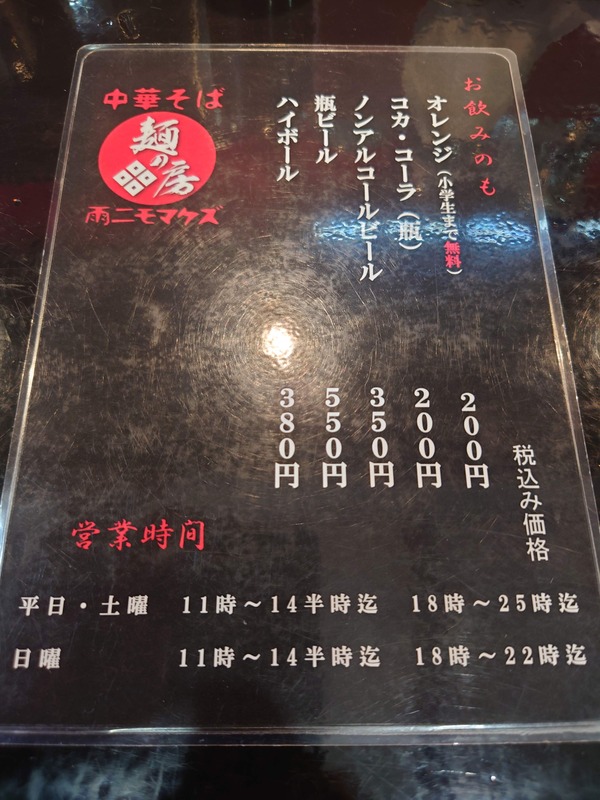 お飲みのも
オレンジ（小学生まで無料）
200円
コカ・コーラ（瓶）
200円
ノンアルコールビール
350円
瓶ビール
550円
ハイボール
380円
税込み価格
中華そば
麺の房
雨ニモマケズ
営業時间
平日・土曜 11時～14半時迄 18時～25時迄
日曜 11時～14半時迄 18時～22時迄